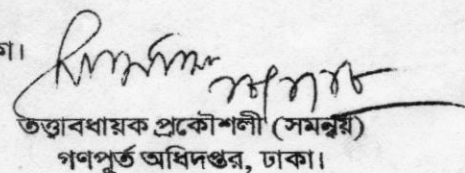 কা।
তত্ত্বাবধায়ক প্রকৌশলী (সমন্বয়)
গণপূর্ত অধিদপ্তর, ঢাকা।